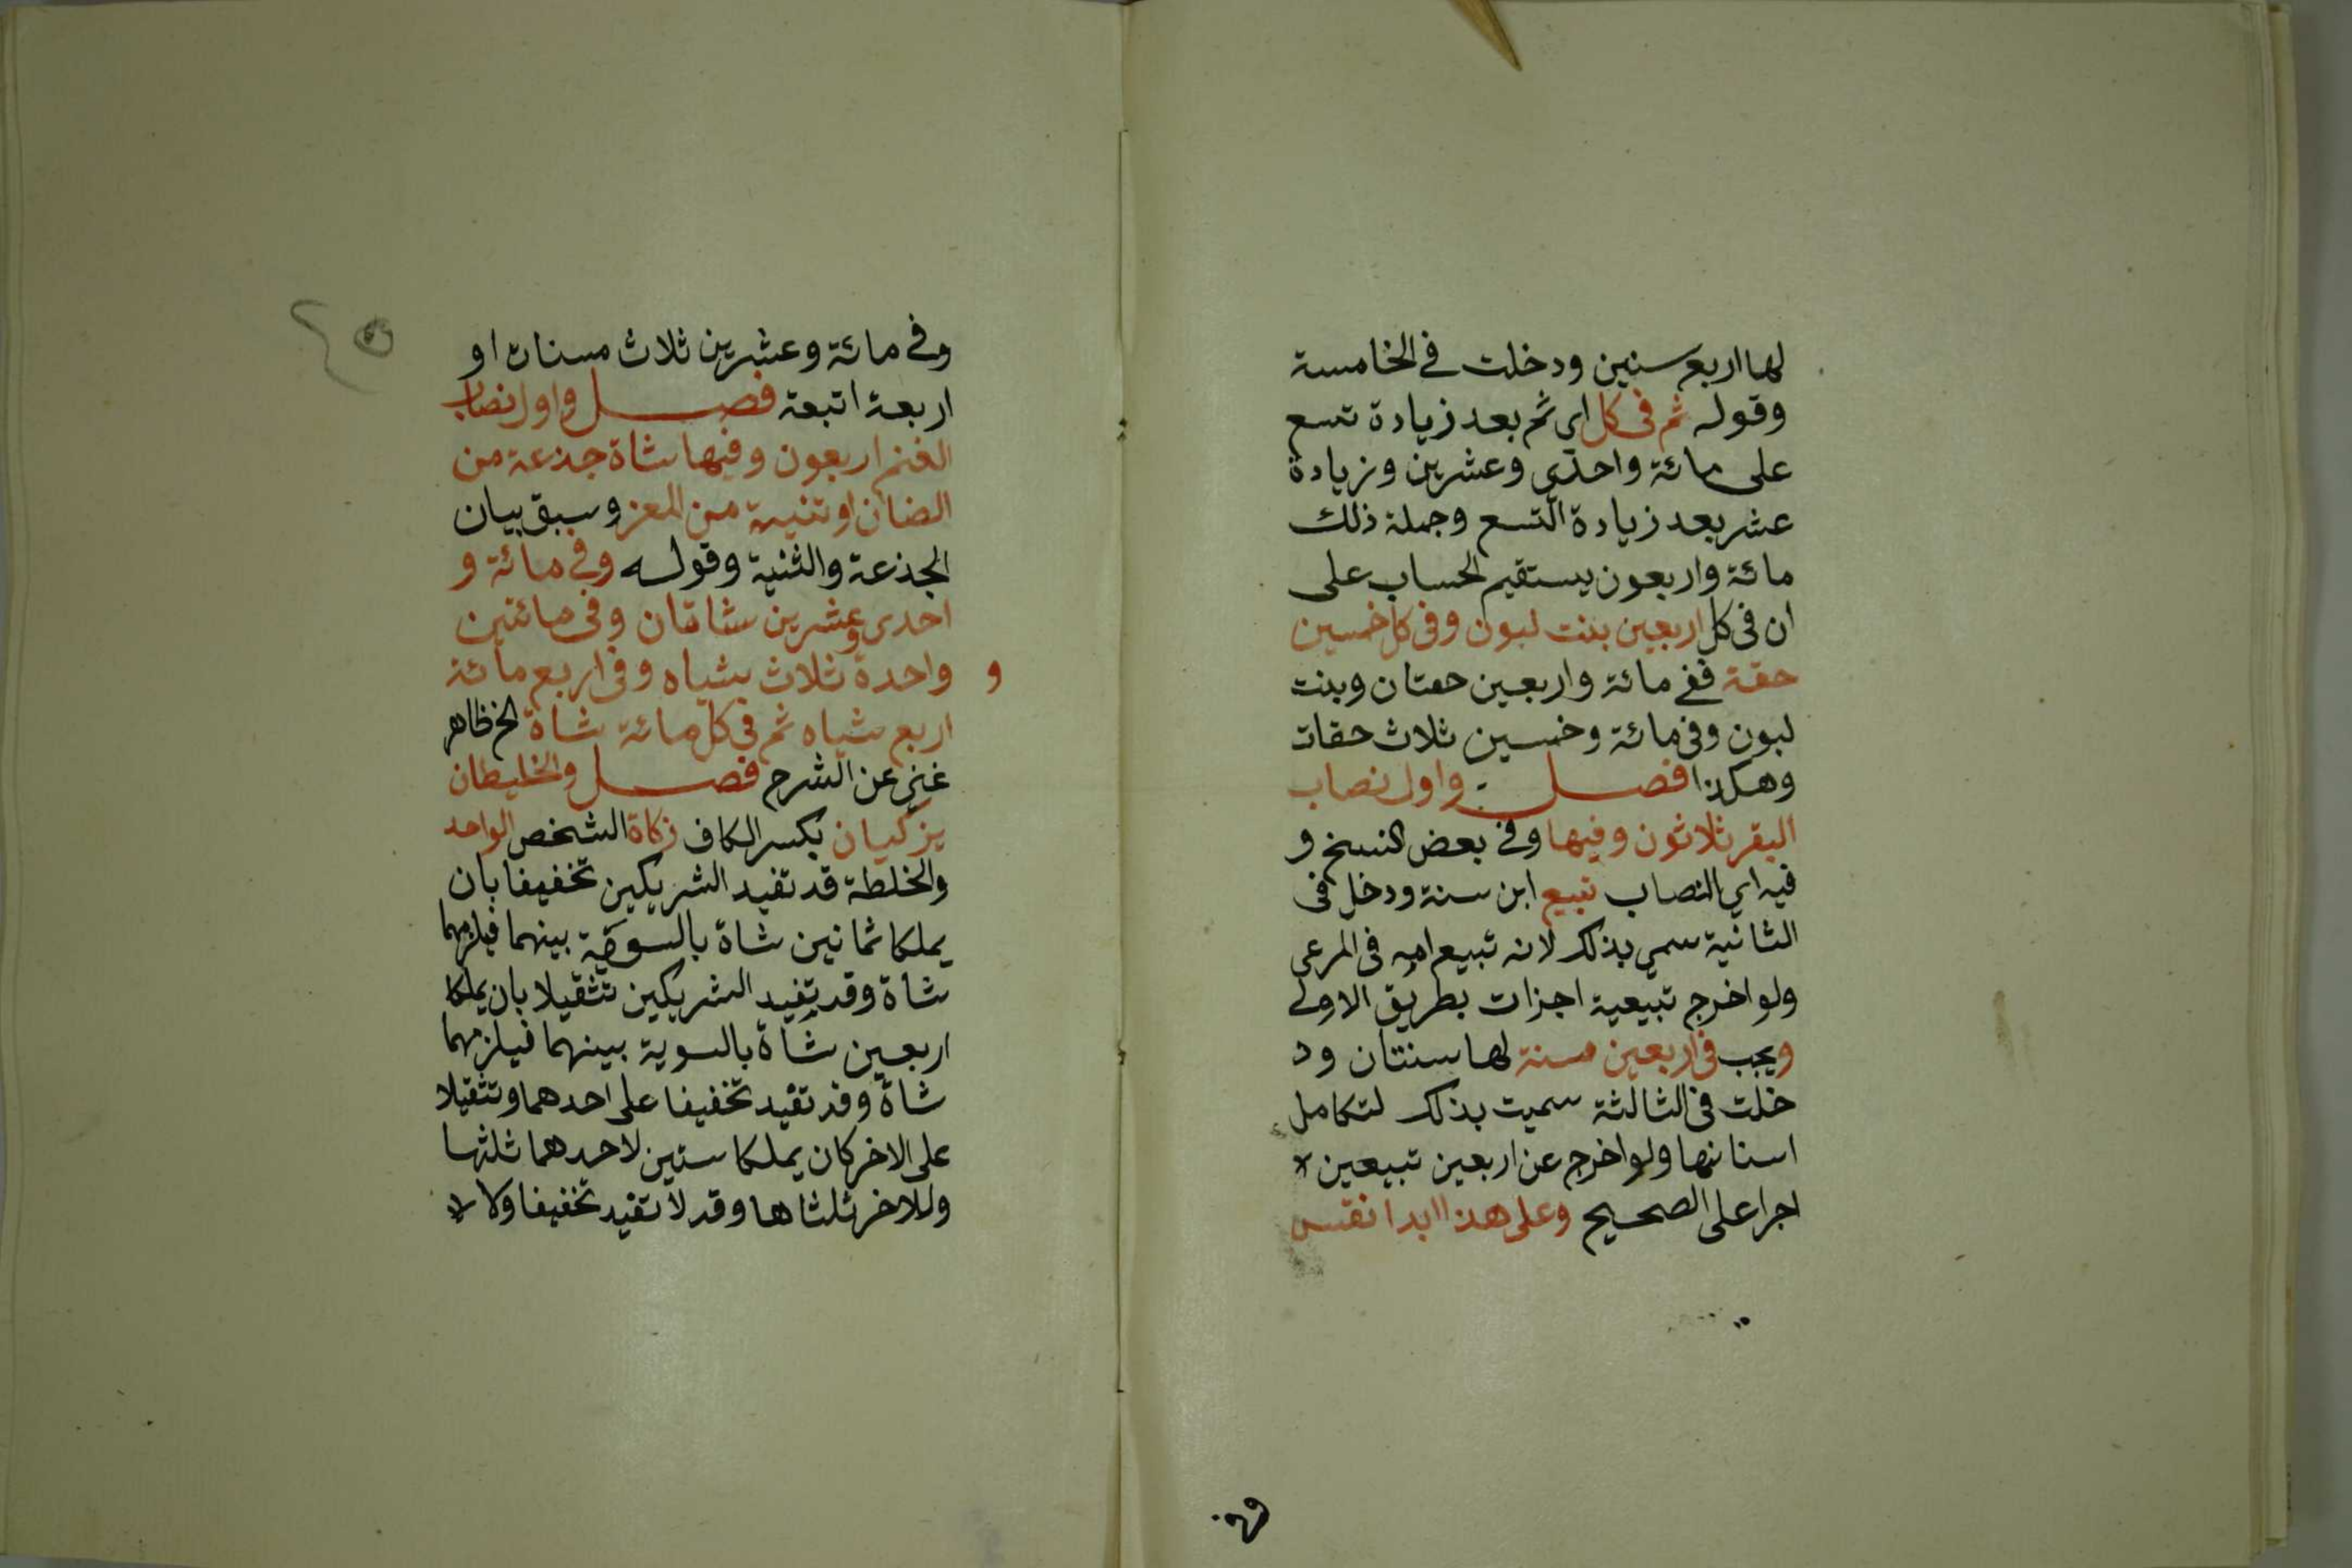 لها اربع سنين ودخلت في الخامسة
وقوله ثم في كل اي ثم بعد زيادة تسع
على مائة واحدى وعشرين وزيادة
عشر بعد زيادة التسع وجملة ذلك
مائة واربعون يستقيم الحساب على
ان في كل اربعين بنت لبون وفي كل خمسين
حقة ففي مائة واربعين حقتان وبنت
لبون وفي مائة وخمسين ثلاث حقات
وهكذا فصل واول نصاب
البقر ثلاثون وفيها وفي بعض النسخ و
فيه اي النصاب تبيع ابن سنة ودخل في
الثانية سمي بذلك لانه تبيع امه في المرعى
ولو اخرج تبيعية اجزات بطريق الاولى
ويجب في اربعين مسنة لها سنتان ود
خلت في الثالثة سميت بذلك لتكامل
اسنانها ولو اخرج عن اربعين تبيعين لا
اجرا على الصحيح وعلى هذا ابدا نقس
وفي
وفي مائة وعشرين ثلاث مسنات او
اربعة اتبعة فصل واول نصاب
الغنم اربعون وفيها شاة جذعة من
الضان او ثنية من المعز وسبق بيان
الجذعة والثنية وقوله وفي مائة و
احدى وعشرين شاتان وفي مائتين
و واحدة ثلاث شياه وفي اربع مائة
اربع شياه ثم في كل مائة شاة الخ ظاهر
غني عن الشرح فصل والخليطان
يزكيان بكسر الكاف زكاة الشخص الواحد
والخلطة قد تفيد الشريكين تخفيفا بان
يملكا ثمانين شاة بالسوية بينهما فيلزمهما
شاة وقد تفيد الشريكين تثقيلا بان يملكا
اربعين شاة بالسوية بينهما فيلزمهما
شاة وقد تفيد تخفيفا على احدهما وتثقيلا
على الاخر كان يملكا ستين لاحدهما ثلثها
وللاخر ثلثاها وقد لا تفيد تخفيفا ولا